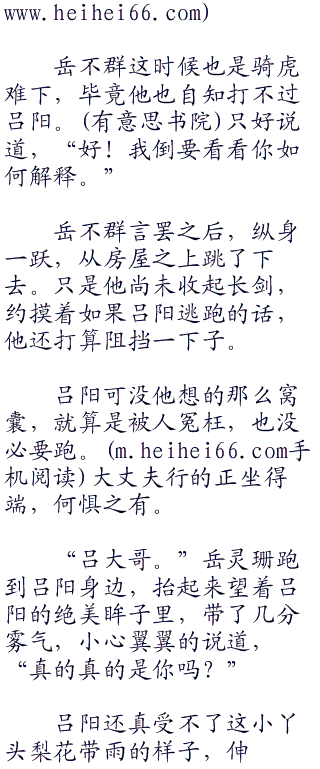 www.heihei66.com)
岳不群这时候也是骑虎
难下，毕竟他也自知打不过
吕阳。(有意思书院)只好说
道，“好！我倒要看看你如
何解释。”
岳不群言罢之后，纵身
一跃，从房屋之上跳了下
去。只是他尚未收起长剑，
约摸着如果吕阳逃跑的话，
他还打算阻挡一下子。
吕阳可没他想的那么窝
囊，就算是被人冤枉，也没
必要跑。(m.heihei66.com手
机阅读)大丈夫行的正坐得
端，何惧之有。
“吕大哥。”岳灵珊跑
到吕阳身边，抬起来望着吕
阳的绝美眸子里，带了几分
雾气，小心翼翼的说道，
“真的真的是你吗？”
吕阳还真受不了这小丫
头梨花带雨的样子，伸